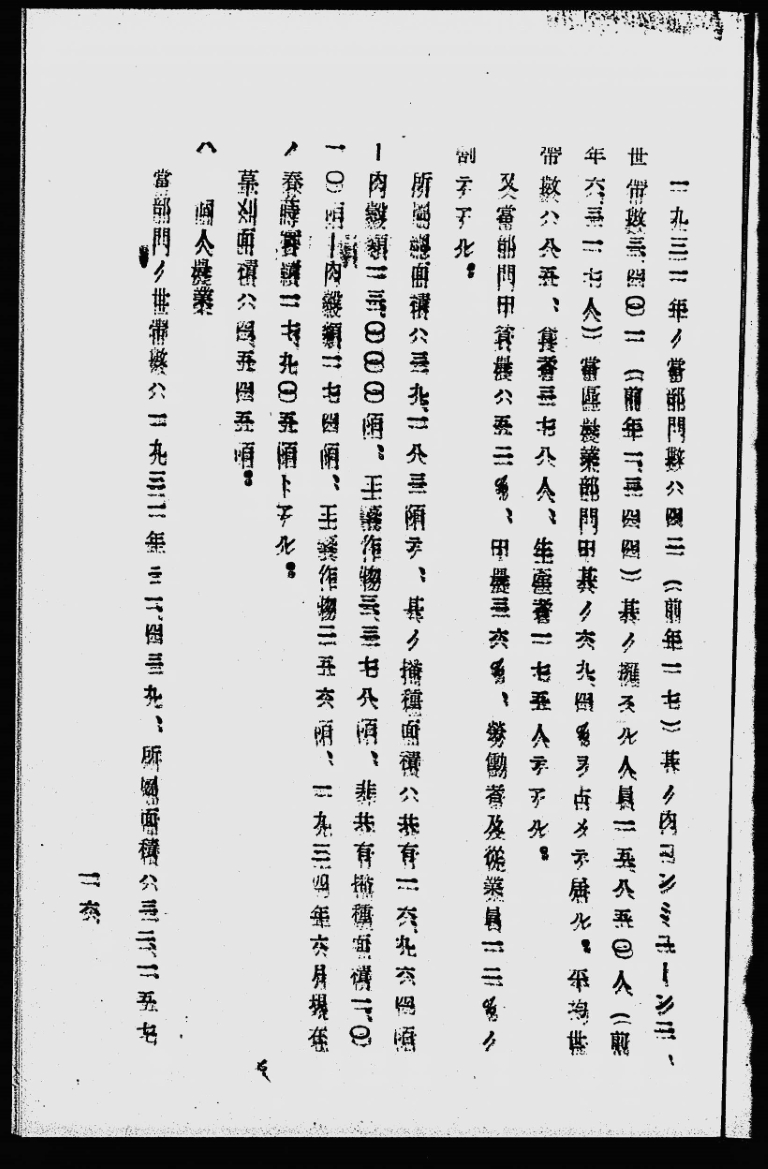 一九三二年ノ當部門數ハ四二（前年一七）其ノ内コンミユーン二、
世帶數三、四〇一（前年一、三四四）其ノ擁スル人員一五八五〇人（前
年六、三一七人）當區農業部門中其ノ六九、四%ヲ占メテ居ル。平均世
帶數ハ八五、食者三七八人、生產者一七五人デアル。
又當部門中貧農ハ五二%、中農三六%、勞働者及從業員一二%ノ
割デアル。
所屬總面積ハ三九、一八三陌デ、其ノ播種面積ハ共有一六、九六四陌
ー内穀類一三、〇〇〇陌、工藝作物三、三七八陌、非共有播種面積一、〇
一〇陌ー内穀類一七四陌、工藝作物二五六陌、一九三四年六月現在
ノ春蒔實績一七、九〇五陌トアル。
草刈面積ハ四、五四五陌。
ハ　個人農業
當部門ノ世帶數ハ一九三二年ニ一、四三九、所屬面積ハ三二、一五七
一六